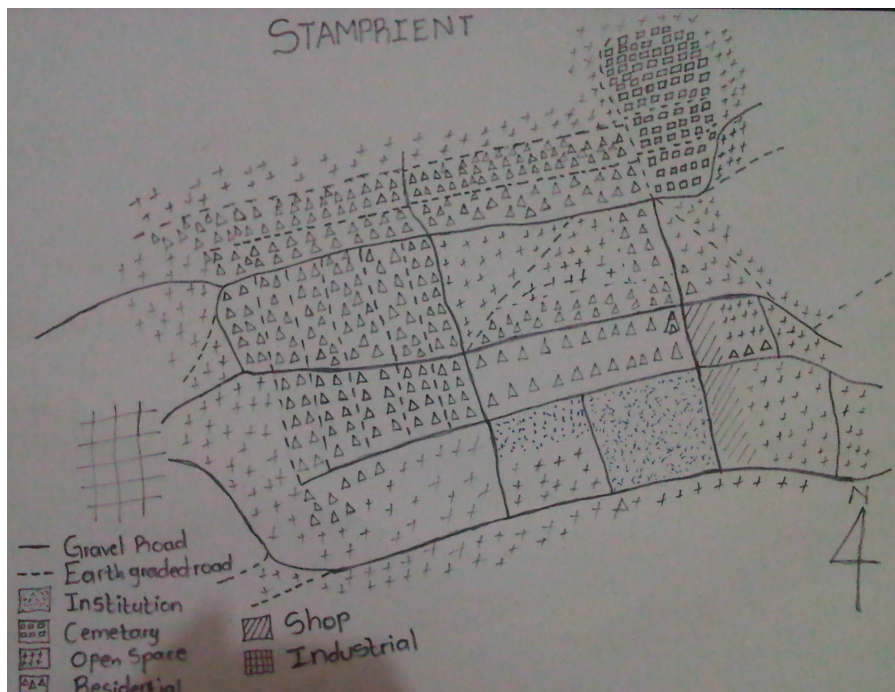 STAMPRIENT
N
Gravel Road
Earth graded road
Institution
Cemetary
Open Space
Residential
Shop
Industrial